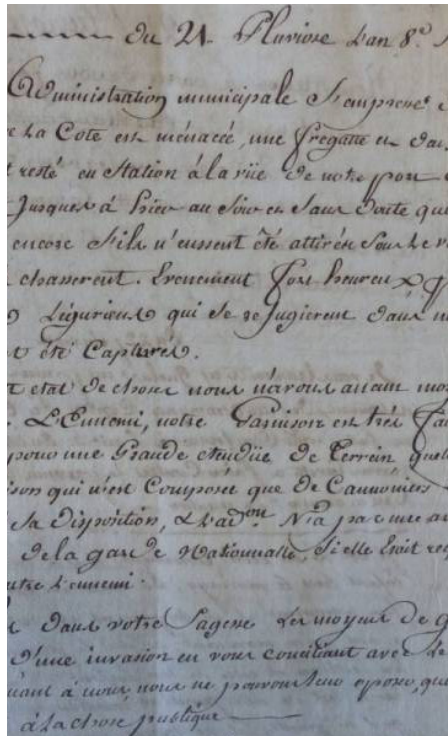 Du 21. Pluviose L'an 8.e
Administration municipale S'empresse
La Cote est ménacée, une fregatte et
resté en Station à la vüe de notre port
Jusques à hier au Soir et Sans Doute que
encore S'ils n'eussent été attirés Sous le
chasserent. Evenement fort heureux p
Liguriens qui Se refugierent dans
été Capturés.
etat de choses nous n'avons aucun
L'Ennemi, notre Garnison est trés
pour une Grande etendüe de Terrein
qui n'est Composée que de Cannoniers
Sa Disposition, & L'ad.on N'a pas une
de la garde Nationnalle, Si elle Etoit
L'ennemi.
dans votre Sagesse Les moyens de
D'une invasion en vous conciliant avec Le
à nous, nous ne pouvons leur oposer, que
à La chose publique